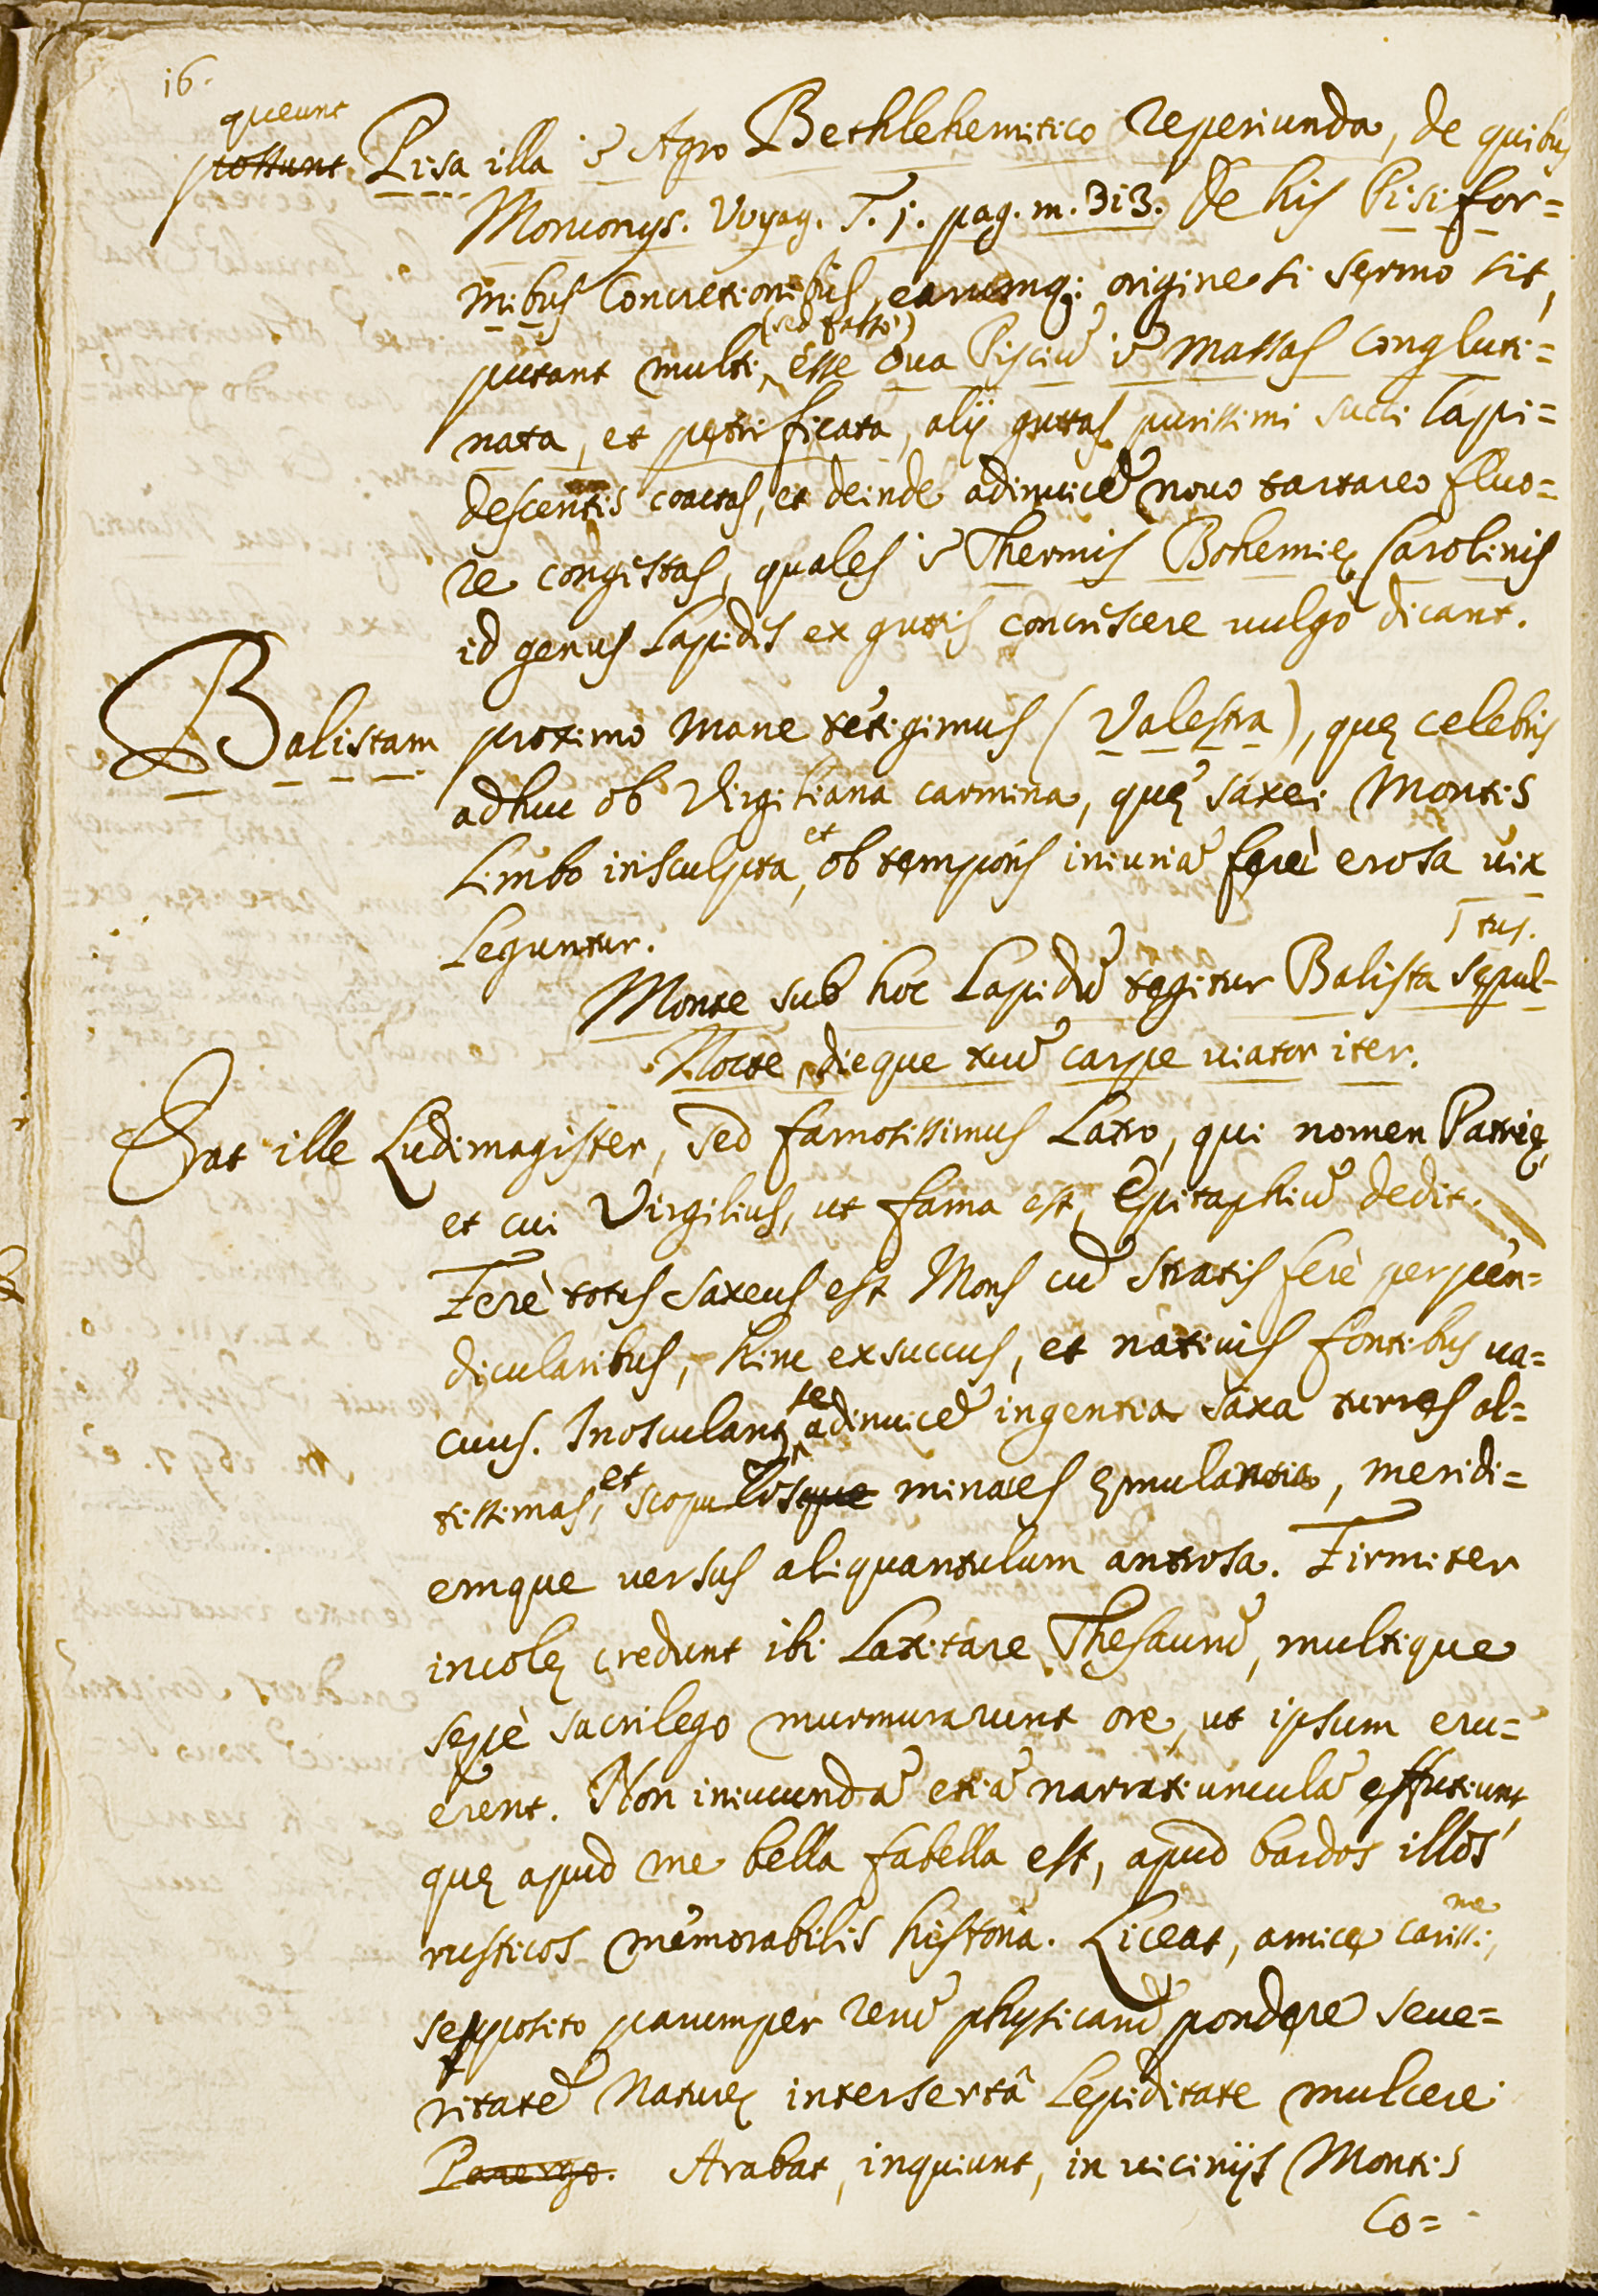 16.
queunt
possunt Pisa illa ĩ Agro Bethlehemitico reperiunda, de quibus
Monconys. Voyag. T. j. pag. m. 313. De his Pisifor=
mibus Concretionibus, earumq; origine si sermo sit,
(sed falsò)
putant multi, esse Oua Pisciũ ĩ massas conglute=
nata, et petrificata, alij guttas purissimi succi lapi=
descentis coactas, et deinde adinuicẽ nouo tartareo fluo=
re congestas, quales ĩ Thermis Bohemię Carolinis
id genus Lapidis ex guttis concrescere uulgò dicant.
Balistam proximò mane tetigimus (Valestra), quę celebris
adhuc ob Virgiliana carmina, quę saxei Montis
et
Limbo insculpta, ob temporis iniuriã ferè erosa uix
leguntur.
tus.
Monte sub hoc Lapidũ tegitur Balista sepul-
Nocte, dieque tuũ carpe uiator iter.
Erat ille Ludimagister, sed famosissimus Latro, qui nomen Patrię,
et cui Virgilius, ut fama est, Epitaphiũ dedit.
Ferè totus saxeus est Mons cũ stratis ferè perpen=
dicularibus, hinc exsuccus, et natiuis fontibus ua=
se
cuus. Inosculant adinuicẽ ingentia saxa turres al=
et
tissimas, scopulosque minaces ęmulantia, meridi=
emque uersus aliquantulum antrosa. Firmiter
incolę credunt ibi Latitare Thesaurũ, multique
sepè sacrilego murmurarunt ore, ut ipsum eru=
erent. Non iniucundã etiã narratiunculã effutiunt,
quę apud me bella fabella est, apud bardos illos
me
rusticos memorabilis historia. Liceat, amice cariss:,
seposito parumper rerũ physicarũ pondere seue=
ritatẽ Naturę intersertâ Lepiditate mulcere
Parergo. Arabat, inquiunt, in uicinijs Montis
Co=